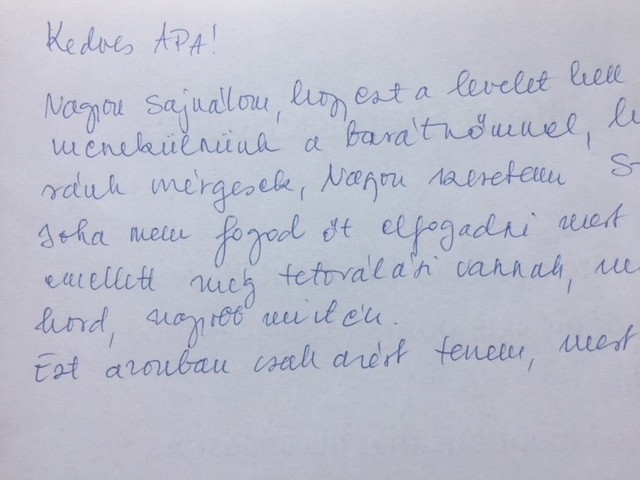 Kedves APA!
Nagyon sajnálom, hogy ezt a levelet kell
menekülnünk a barátnőmmel,
ránk mérgesek, Nagyon szeretem
Soha nem fogod őt elfogadni mert
emellett még tetoválási vannak,
hord, nagyobb mint én.
Ezt azonban csak azért teszem, mert